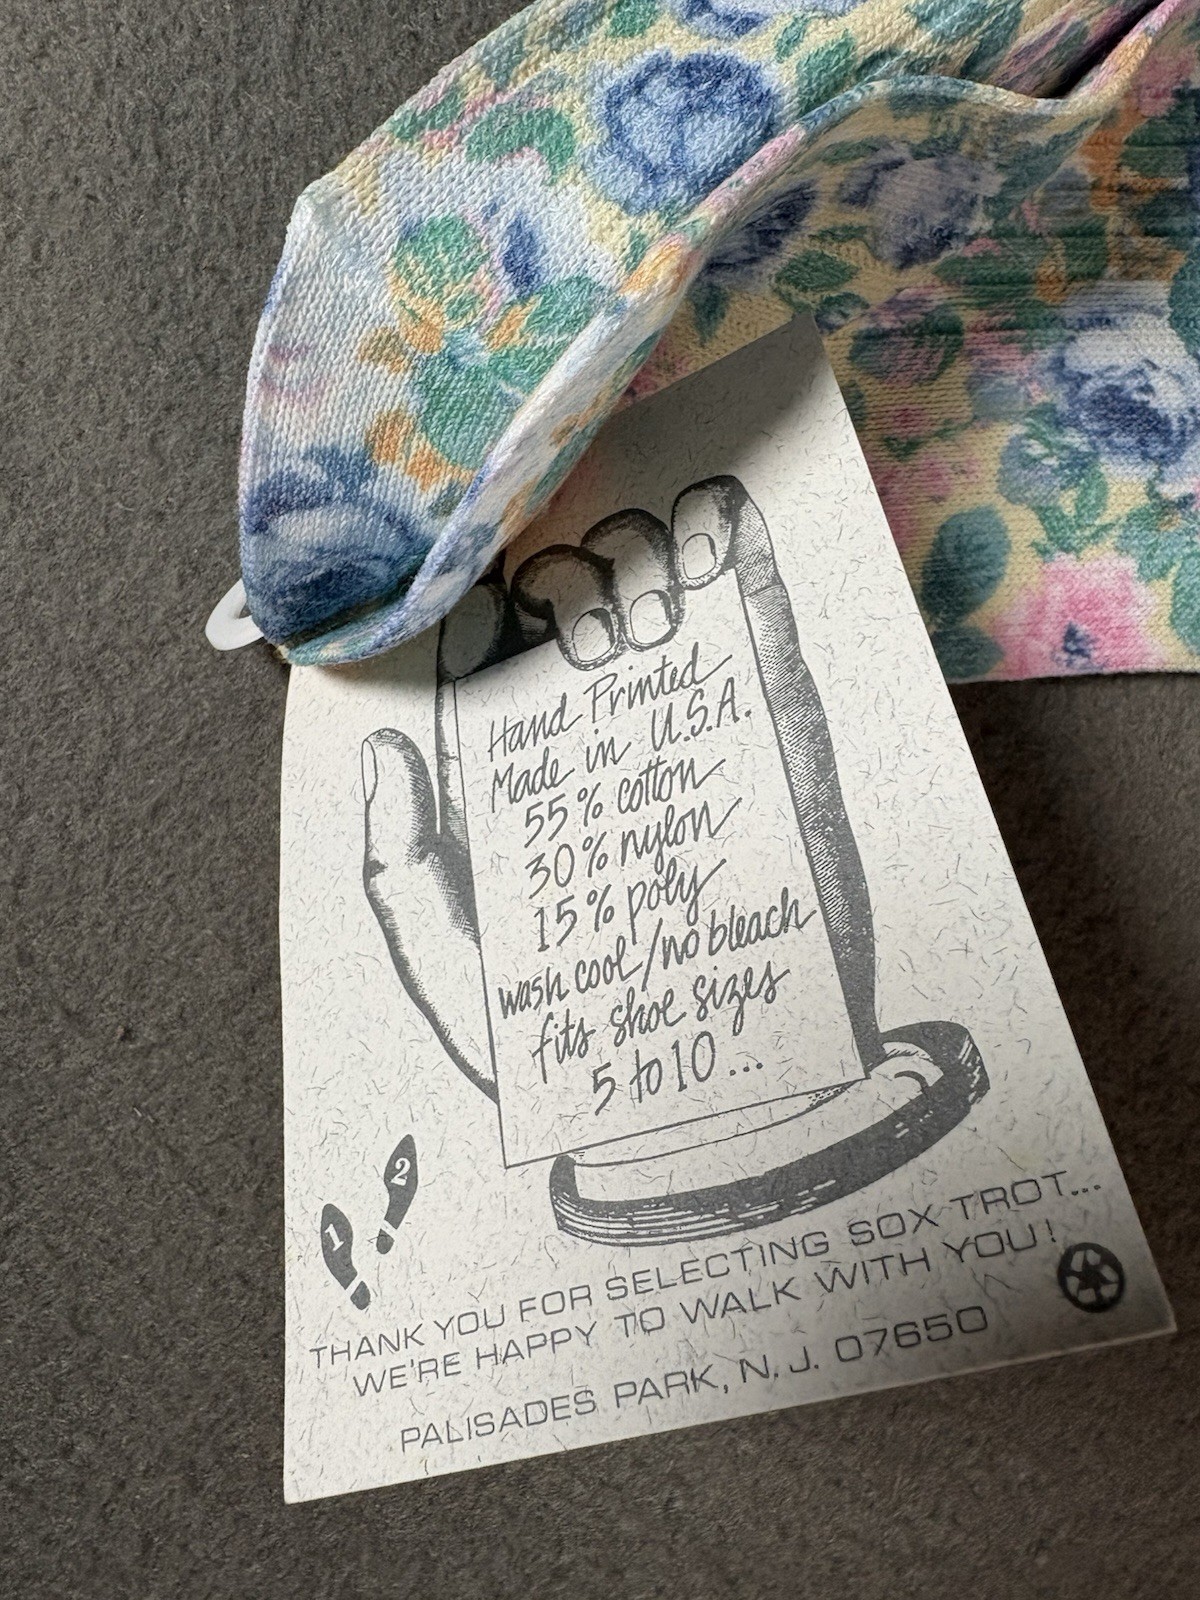 Hand Printed
Made in U.S.A.
55% cotton
30% nylon
15% poly
wash cool/no bleach
fits shoe sizes
5 to 10...
1 2
THANK YOU FOR SELECTING SOX TROT...
WE'RE HAPPY TO WALK WITH YOU!
PALISADES PARK, N.J. 07650